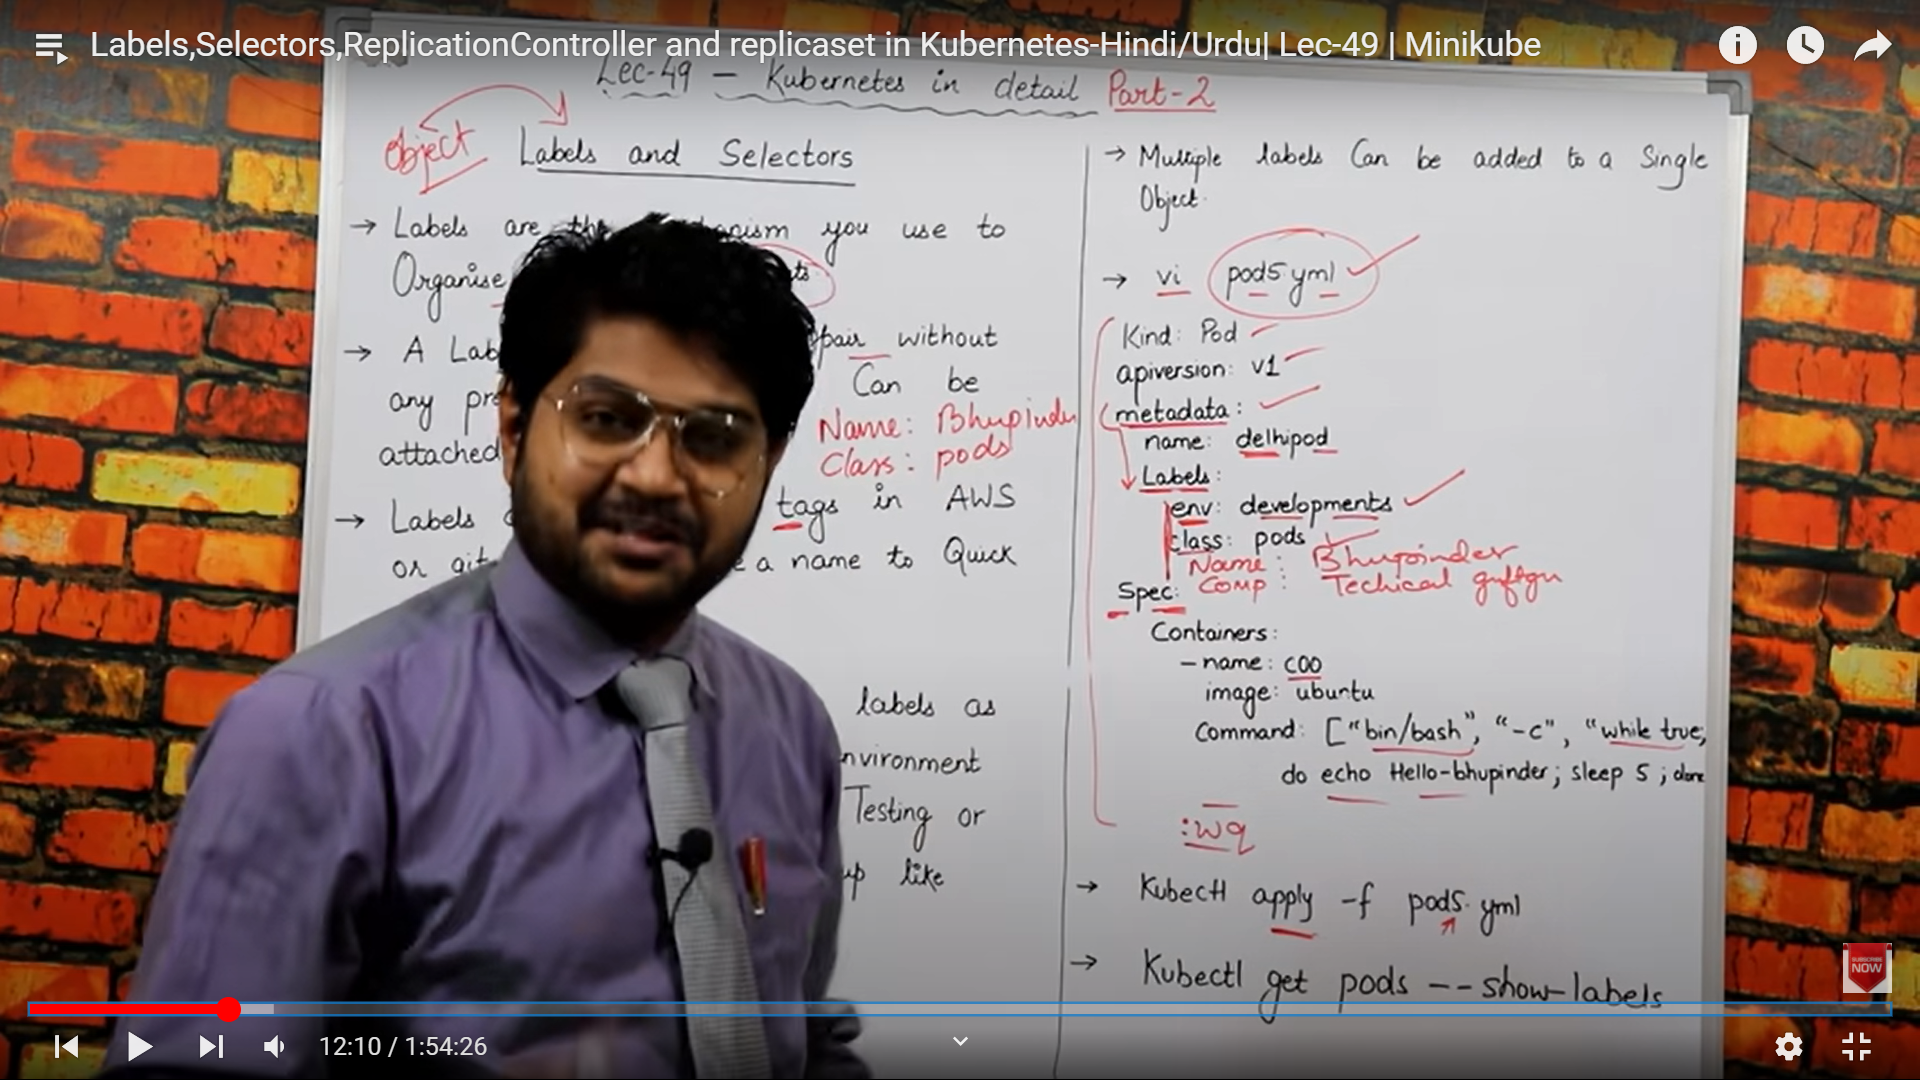 Labels,Selectors,ReplicationController and replicaset in Kubernetes-Hindi/Urdu| Lec-49 | Minikube
Lec-49 — Kubernetes in detail Part-2
Object
Labels and Selectors
→ Labels are the you use to
Organise
→ A pair without
any Can be
attached
Name: Bhupinder
Class: pods
→ Labels tags in AWS
or a name to Quick
labels as
Testing or
like
→ Multiple labels Can be added to a Single
Object.
→ vi pod5.yml
Kind: Pod
apiversion: v1
metadata:
name: delhipod
Labels:
env: developments
class: pods
Name: Bhupinder
Comp: Techical guftgu
Spec:
Containers:
- name: c00
image: ubuntu
Command: ["bin/bash", "-c", "while true;
do echo Hello-bhupinder; sleep 5; done
:wq
→ Kubectl apply -f pod5.yml
→ Kubectl get pods --show-labels
SUBSCRIBE
NOW
12:10 / 1:54:26